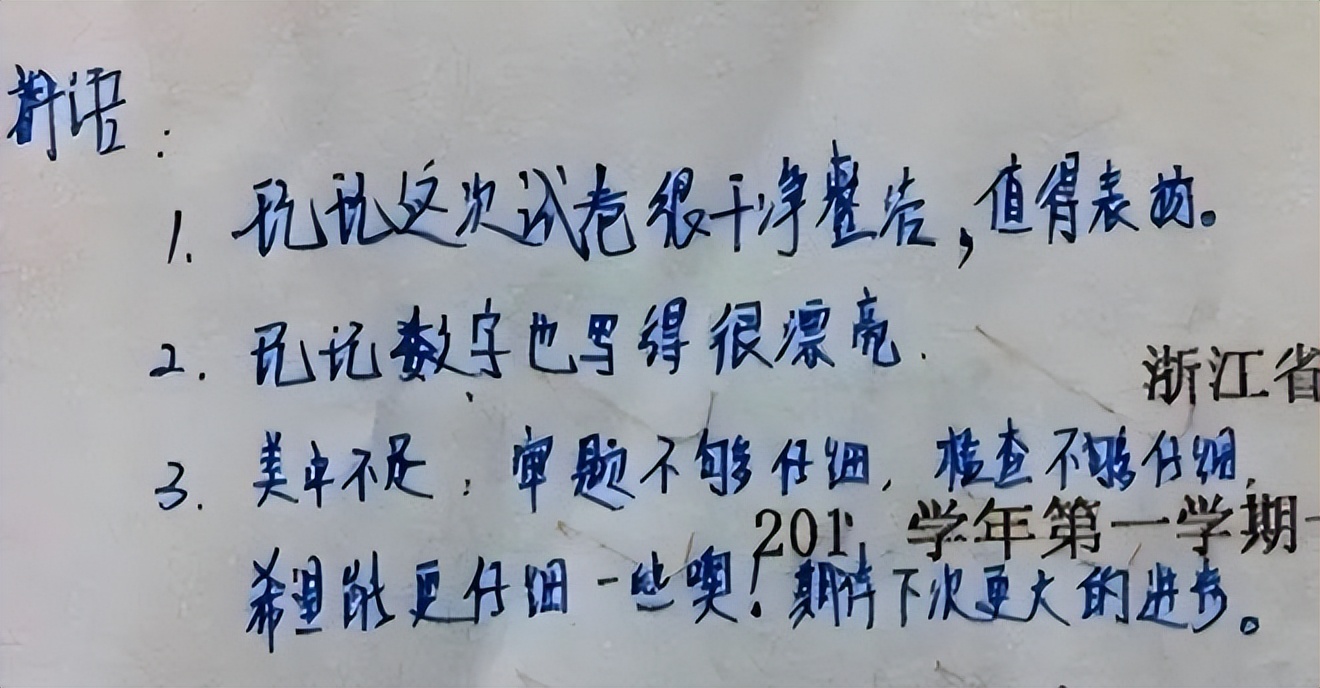 寄语：
1. 玩玩这次试卷很干净整洁，值得表扬。
2. 玩玩数字也写得很漂亮.
浙江省
3. 美中不足：审题不够仔细，检查不够仔细，
201 学年第一学期
希望能更仔细一些噢！期待下次更大的进步。